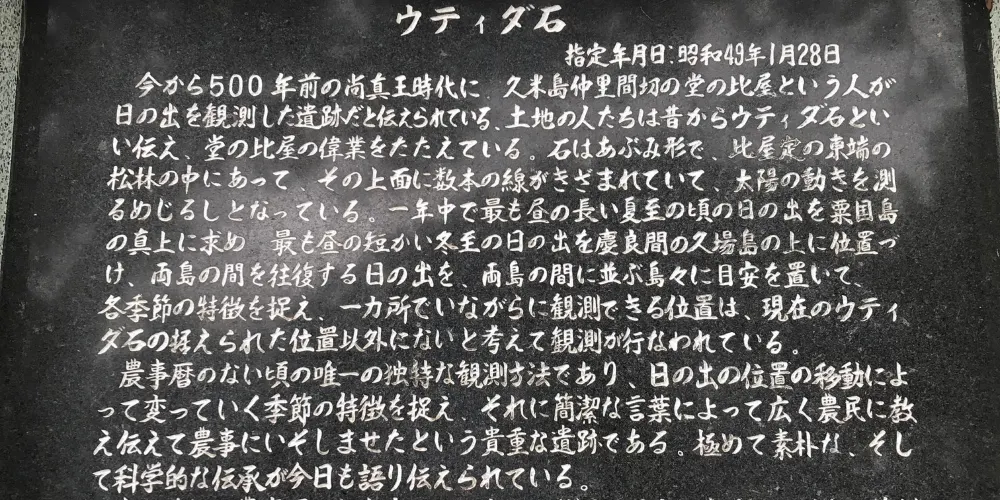 ウティダ石
指定年月日:昭和49年1月28日
今から500年前の尚真王時代に、久米島仲里間切の堂の比屋という人が
日の出を観測した遺跡だと伝えられている、土地の人たちは昔からウティダ石とい
い伝え、堂の比屋の偉業をたたえている。石はあぶみ形で、比屋定の東端の
松林の中にあって、その上面に数本の線がきざまれていて、太陽の動きを測
るめじるしとなっている。一年中で最も昼の長い夏至の頃の日の出を粟国島
の真上に求め 最も昼の短かい冬至の日の出を慶良間の久場島の上に位置づ
け、両島の間を往復する日の出を、両島の間に並ぶ島々に目安を置いて、
各季節の特徴を捉え、一カ所でいながらに観測できる位置は、現在のウティ
ダ石の据えられた位置以外にないと考えて観測が行なわれている。
農事暦のない頃の唯一の独特な観測方法であり、日の出の位置の移動によ
って変っていく季節の特徴を捉え それに簡潔な言葉によって広く農民に教
え伝えて農事にいそしませたという貴重な遺跡である。極めて素朴な、そし
て科学的な伝承が今日も語り伝えられている。